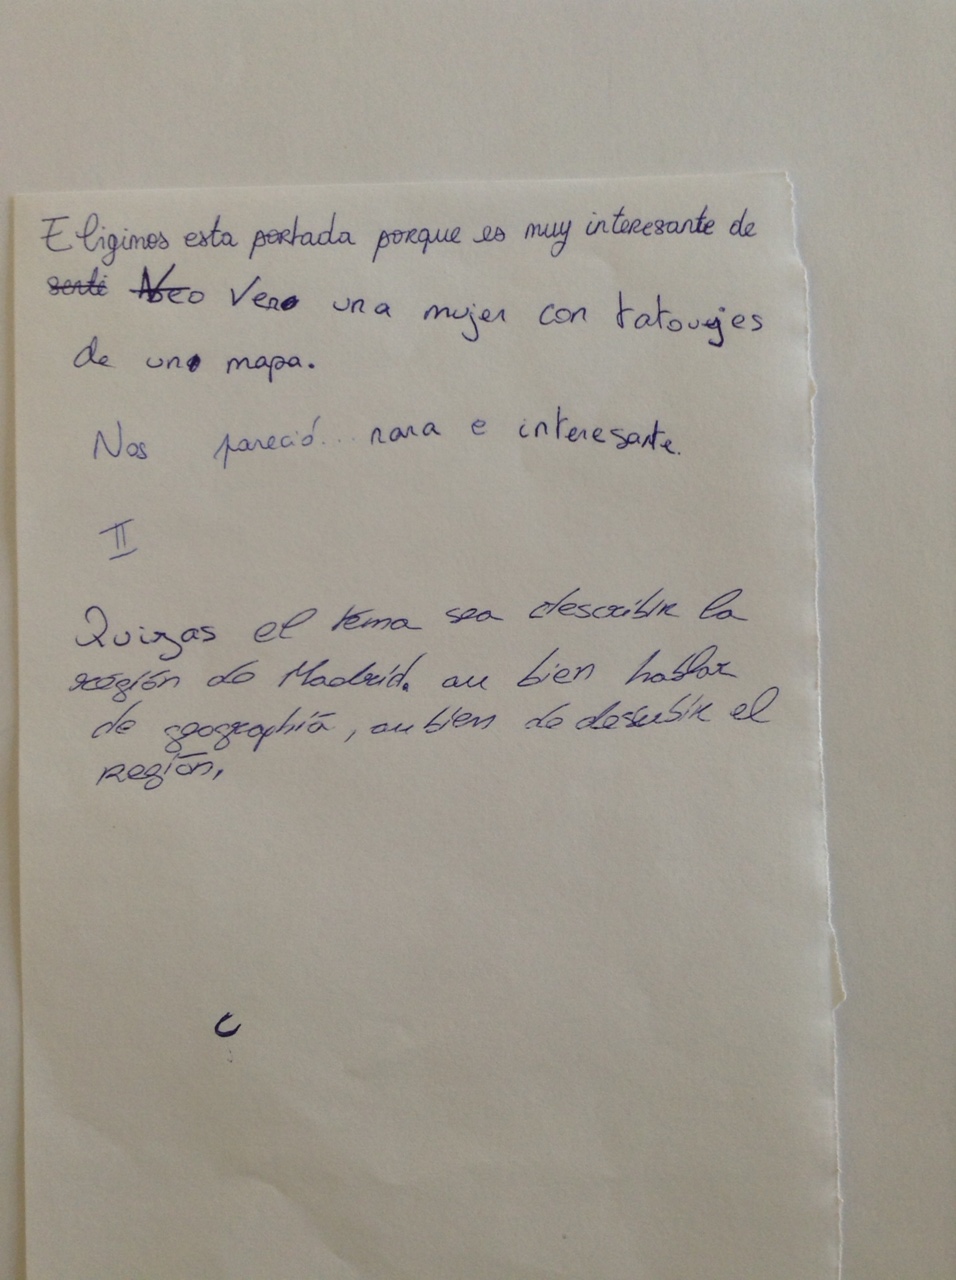 Eligimos esta portada porque es muy interesante de
senti Neo Vero una mujer con tatouejes
de uno mapa.
Nos pareció... rara e interesante.
II
Quizas el tema sea describir la
región de Madrid. ou bien hablar
de geographía, ou bien de describir el
región,